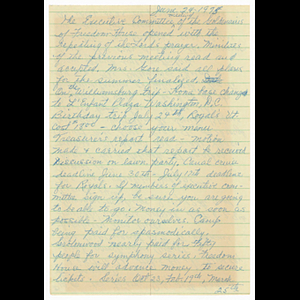 June 24, 1975
The Executive Committee of the Extension
of Freedom House opened with the
Repeating of the Lord's prayer. Minutes
of the previous meeting read and
accepted. Mrs. said all plans
for the summer finalized.
Williamsburg Trip - Rona Rose change
to L'Enfant Plaza Washington, D.C.
Birthday trip July 29th Royale St.
Cost - choose your menu
Treasurer's report read - motion
made & carried that report be received
Discussion on lawn party, Canal cruise
deadline June 30th - July 15th deadline
for Royale - If members of executive com-
mittee sign up, be sure you are going
to be able to go! Money in as soon as
possible - Monitor ourselves. Camp
being paid for sporadically.
nearly paid for thirty
people for symphony series. Freedom
House will advance money to secure
tickets - Series Oct 23, Feb. 19th, Mar.
25th